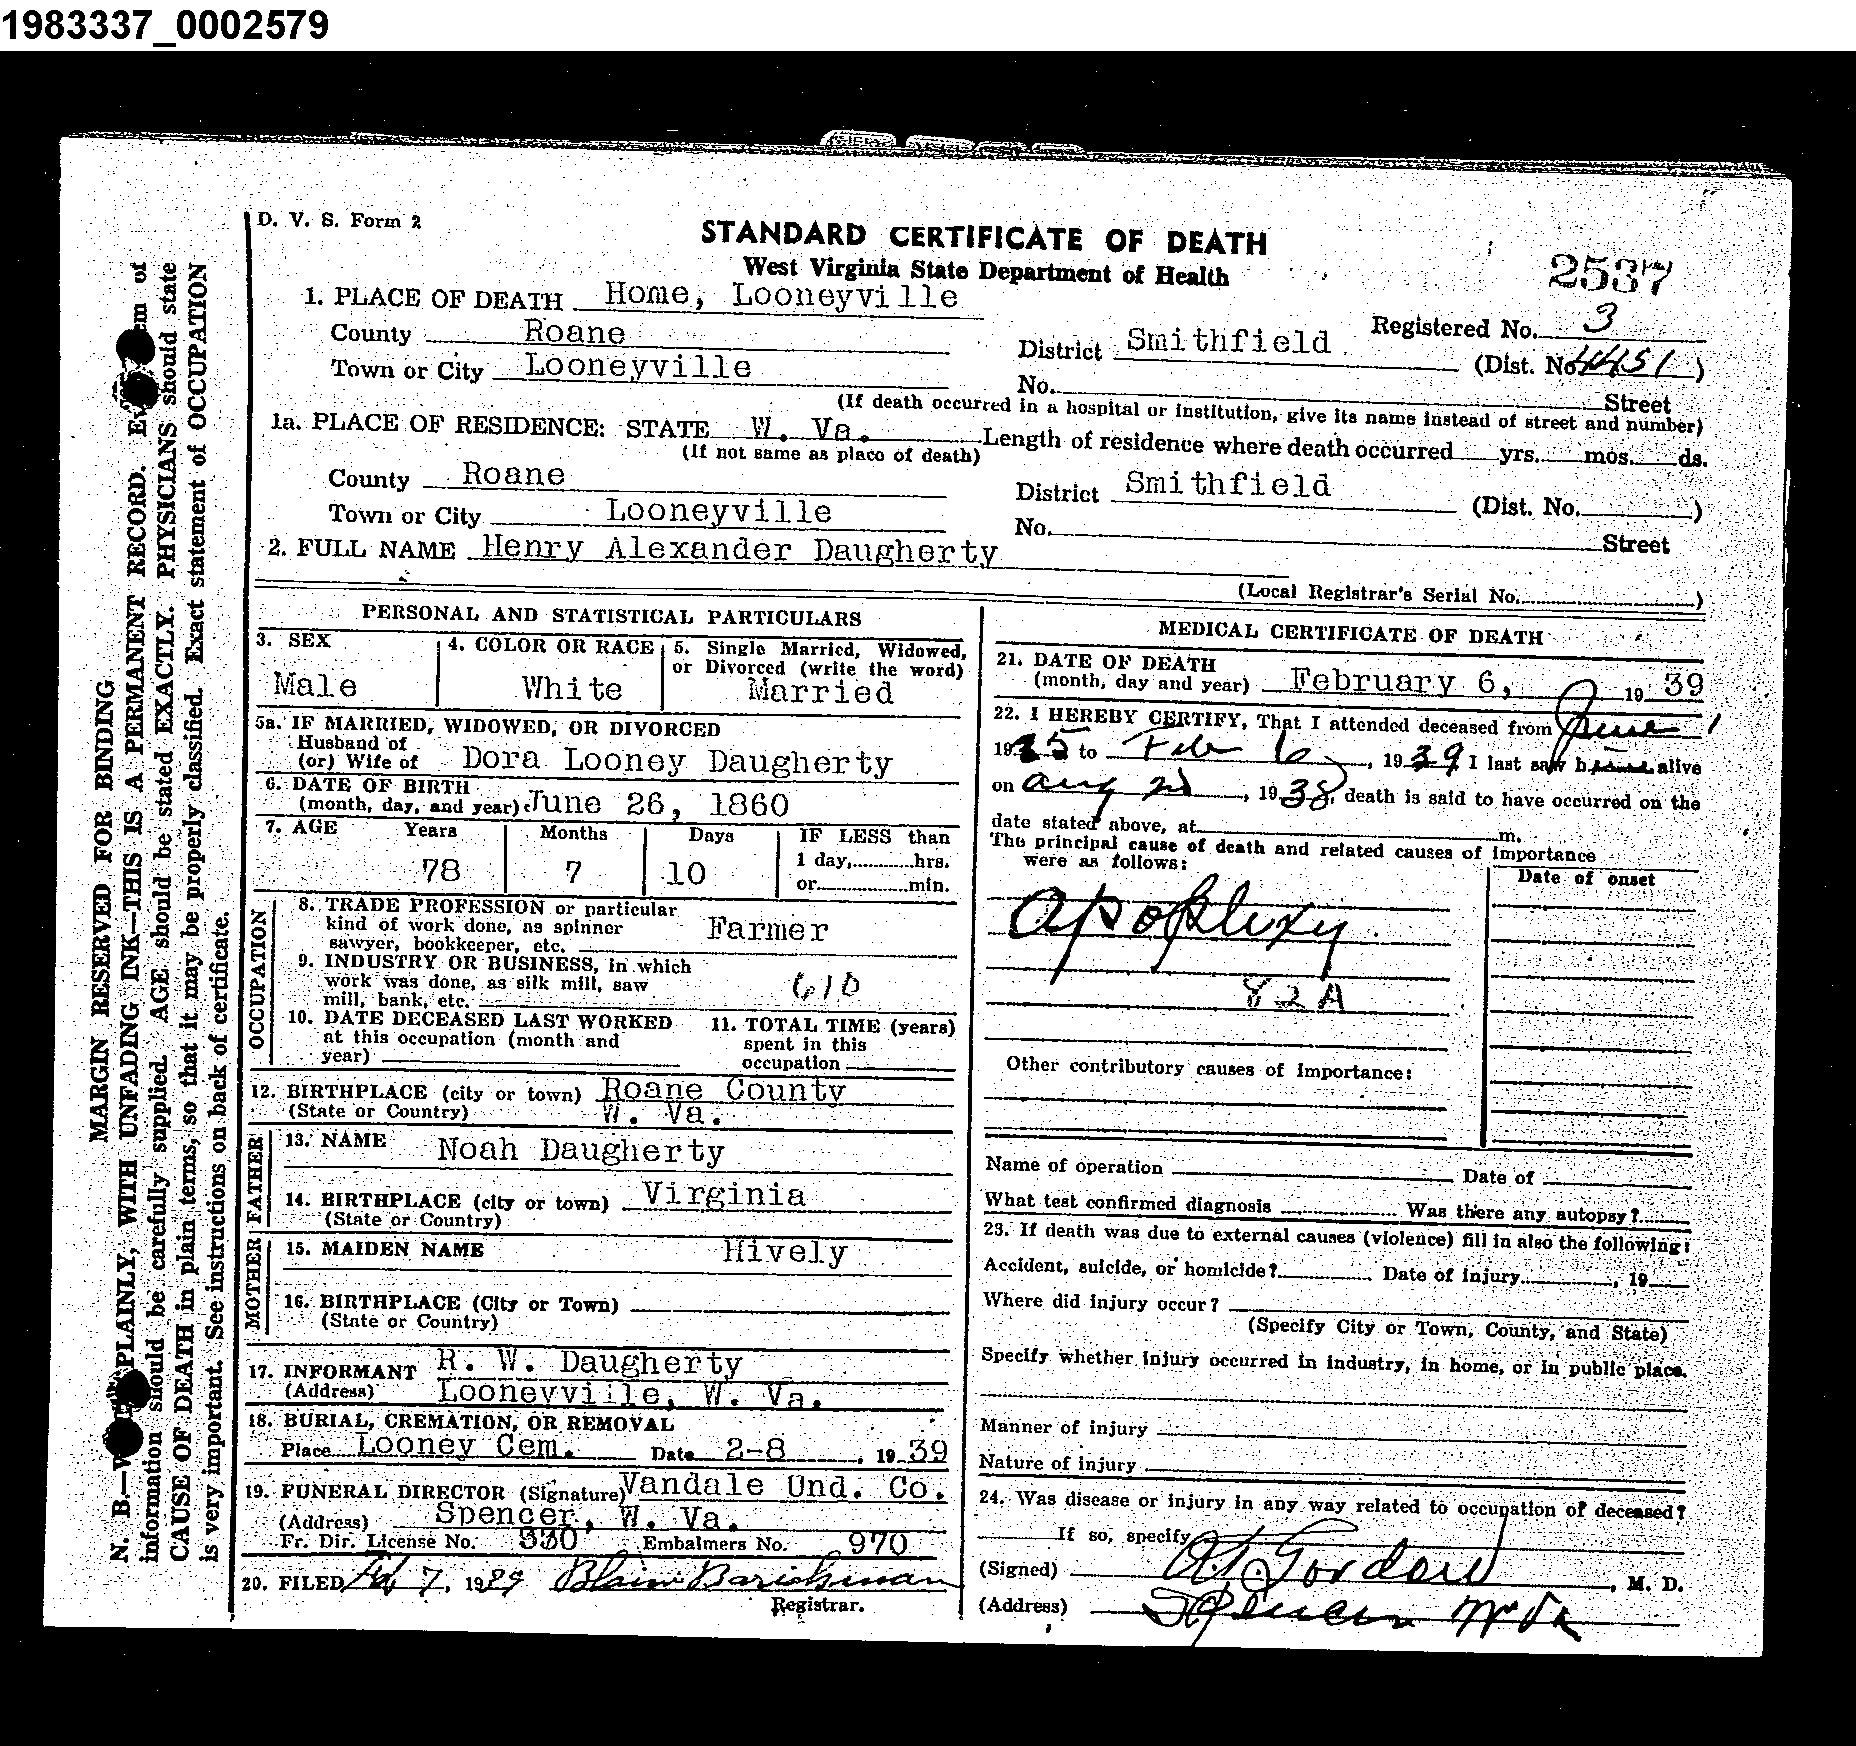 1983337_0002579
D. V. S. Form 2
STANDARD CERTIFICATE OF DEATH
West Virginia State Department of Health
2537
1. PLACE OF DEATH Home, Looneyville
Registered No. 3
County Roane
District Smithfield (Dist. No. 4451)
Town or City Looneyville
No. Street
(If death occurred in a hospital or institution, give its name instead of street and number)
1a. PLACE OF RESIDENCE: STATE W. Va. Length of residence where death occurred yrs. mos. ds.
(If not same as place of death)
County Roane District Smithfield (Dist. No. )
Town or City Looneyville No. Street
2. FULL NAME Henry Alexander Daugherty
(Local Registrar's Serial No. )
PERSONAL AND STATISTICAL PARTICULARS
3. SEX
Male
4. COLOR OR RACE
White
5. Single Married, Widowed,
or Divorced (write the word)
Married
5a. IF MARRIED, WIDOWED, OR DIVORCED
Husband of
(or) Wife of Dora Looney Daugherty
6. DATE OF BIRTH
(month, day, and year) June 26, 1860
7. AGE Years Months Days IF LESS than
1 day, hrs.
78 7 10
or min.
OCCUPATION
8. TRADE PROFESSION or particular
kind of work done, as spinner
sawyer, bookkeeper, etc. Farmer
9. INDUSTRY OR BUSINESS, in which
work was done, as silk mill, saw
mill, bank, etc. 610
10. DATE DECEASED LAST WORKED
at this occupation (month and
year)
11. TOTAL TIME (years)
spent in this
occupation
12. BIRTHPLACE (city or town) Roane County
(State or Country) W. Va.
FATHER
13. NAME Noah Daugherty
14. BIRTHPLACE (city or town) Virginia
(State or Country)
MOTHER
15. MAIDEN NAME Hively
16. BIRTHPLACE (City or Town)
(State or Country)
17. INFORMANT R. W. Daugherty
(Address) Looneyville, W. Va.
18. BURIAL, CREMATION, OR REMOVAL
Place Looney Cem. Date 2-8, 1939
19. FUNERAL DIRECTOR (Signature) Vandale Und. Co.
(Address) Spencer, W. Va.
Fr. Dir. License No. 330 Embalmers No. 970
20. FILED Feb 7, 1939 Blain Barickman
Registrar.
MEDICAL CERTIFICATE OF DEATH
21. DATE OF DEATH
(month, day and year) February 6, 1939
22. I HEREBY CERTIFY, That I attended deceased from June 1
1935 to Feb 6, 1939 I last saw him alive
on Aug 1938, death is said to have occurred on the
date stated above, at m.
The principal cause of death and related causes of importance
were as follows:
Date of onset
Apoplexy
82A
Other contributory causes of importance:
Name of operation Date of
What test confirmed diagnosis Was there any autopsy?
23. If death was due to external causes (violence) fill in also the following:
Accident, suicide, or homicide? Date of injury , 19
Where did injury occur?
(Specify City or Town, County, and State)
Specify whether injury occurred in industry, in home, or in public place.
Manner of injury
Nature of injury
24. Was disease or injury in any way related to occupation of deceased?
If so, specify
(Signed) Gordon, M. D.
(Address) Spencer W Va
MARGIN RESERVED FOR BINDING
N. B.—PLAINLY, WITH UNFADING INK—THIS IS A PERMANENT RECORD. of
information should be carefully supplied. AGE should be stated EXACTLY. PHYSICIANS should state
CAUSE OF DEATH in plain terms, so that it may be properly classified. Exact statement of OCCUPATION
is very important. See instructions on back of certificate.